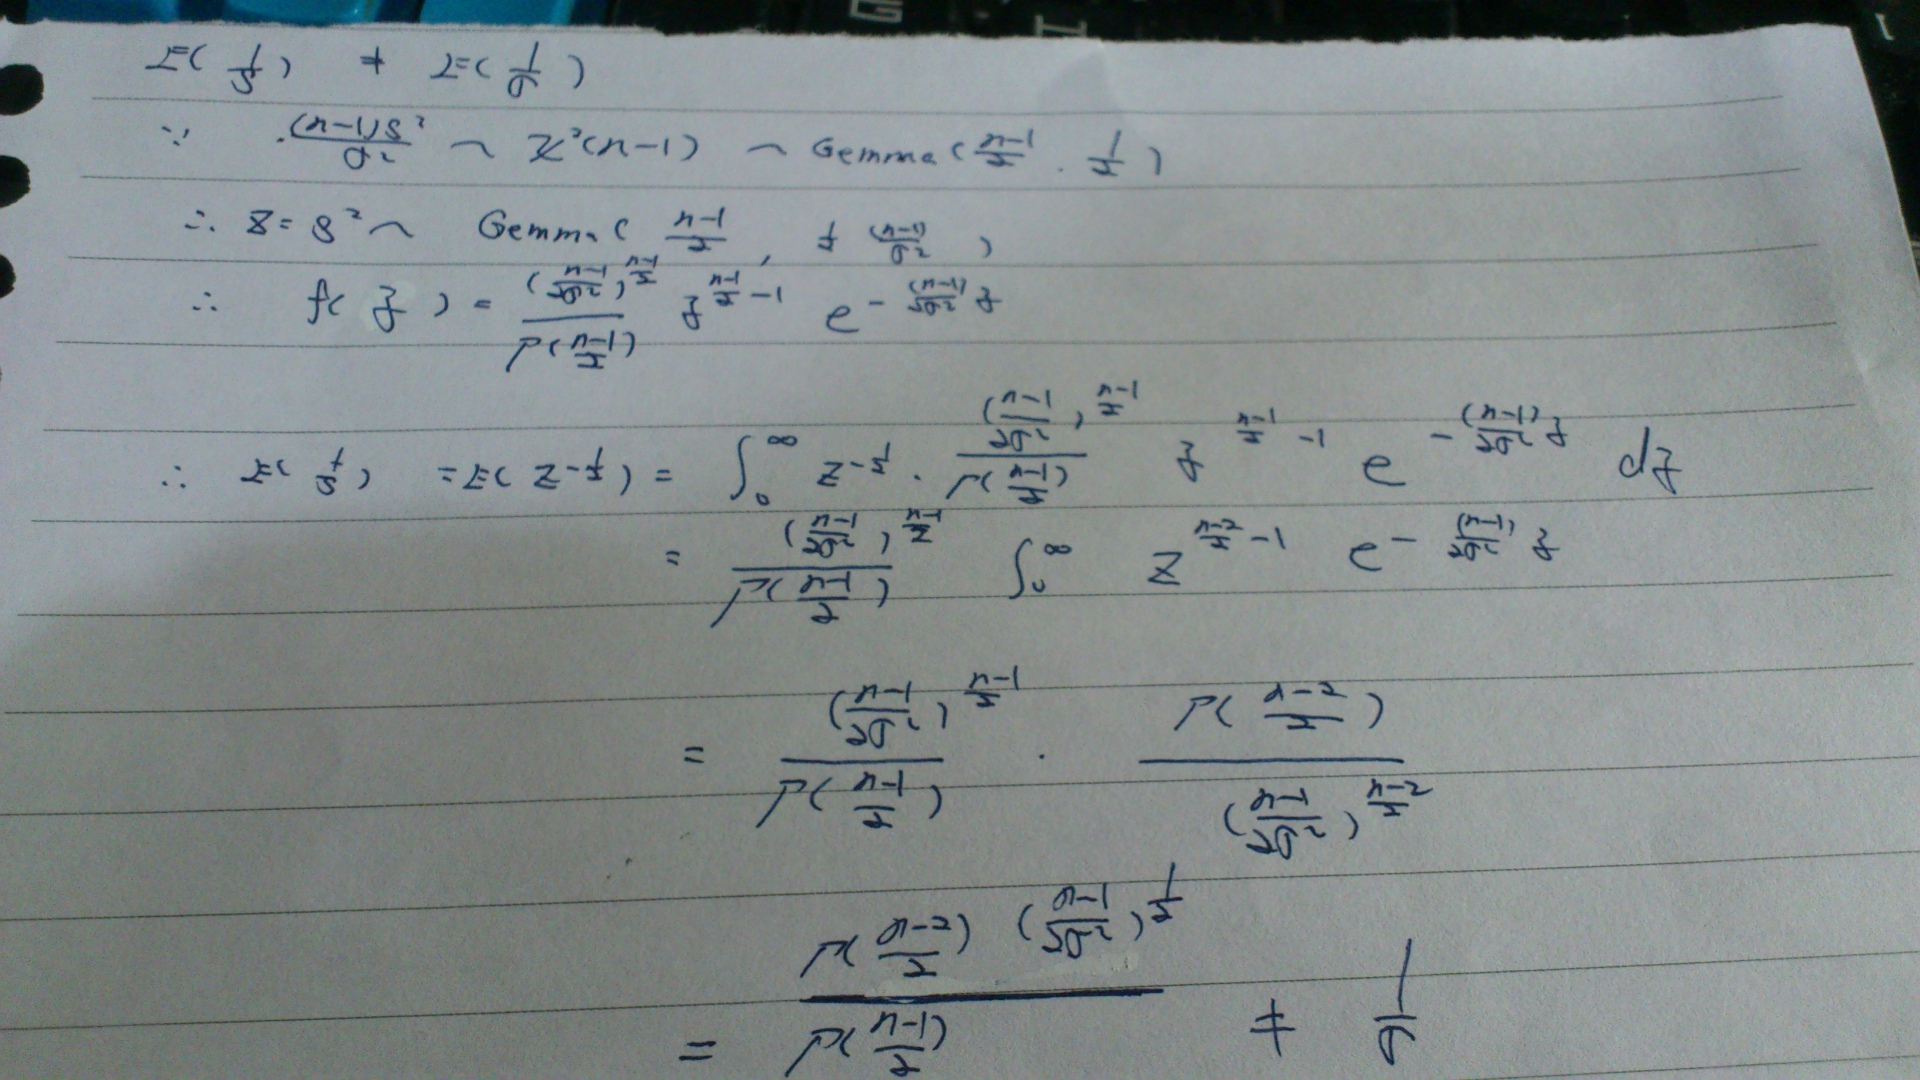 E(1/S) ≠ E(1/σ)
∵ (n-1)S²/σ² ~ χ²(n-1) ~ Gemma(n-1/2, 1/2)
∴ Z=S² ~ Gemma(n-1/2, 1/2 (n-1)/σ²)
∴ f(z) = (n-1/2σ²)^(n-1/2) / Γ(n-1/2) z^(n-1/2 -1) e^(-(n-1)/2σ² z)
∴ E(1/S) = E(Z^(-1/2)) = ∫₀^∞ z^(-1/2) · (n-1/2σ²)^(n-1/2) / Γ(n-1/2) z^(n-1/2 -1) e^(-(n-1)/2σ² z) dz
= (n-1/2σ²)^(n-1/2) / Γ(n-1/2) ∫₀^∞ z^(n-2/2 -1) e^(-(n-1)/2σ² z)
= (n-1/2σ²)^(n-1/2) / Γ(n-1/2) · Γ(n-2/2) / (n-1/2σ²)^(n-2/2)
= Γ(n-2/2) (n-1/2σ²)^(1/2) / Γ(n-1/2) ≠ 1/σ